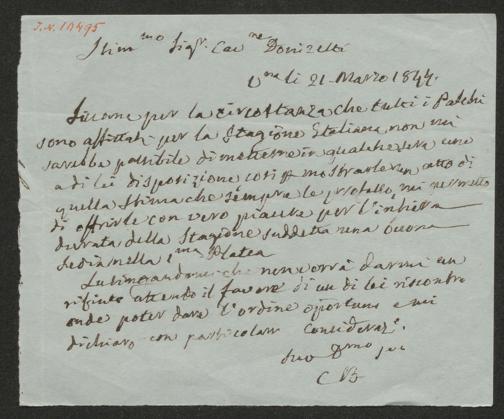 I.N. 10495
Stim.mo Sigr. Cav.ne Donizetti
V.na li 21. Marzo 1844.
Siccome per la circostanza che tutti i Palchi
sono affittati per la Stagione Italiana, non mi
sarebbe possibile di metterne in qualche sera uno
a di lei disposizione così mostrarle un atto di
quella stima che sempre le professo mi permetto
di offrirle con vero piacere per l'intiera
durata della Stagione suddetta una buona
Sedia nella I.ma Platea
Lusingandomi che non vorrà darmi un
rifiuto attento il favore di un di lei riscontro
onde poter dare l'ordine opportuno e mi
dichiaro con particolare Consideraz.e
Suo
CB